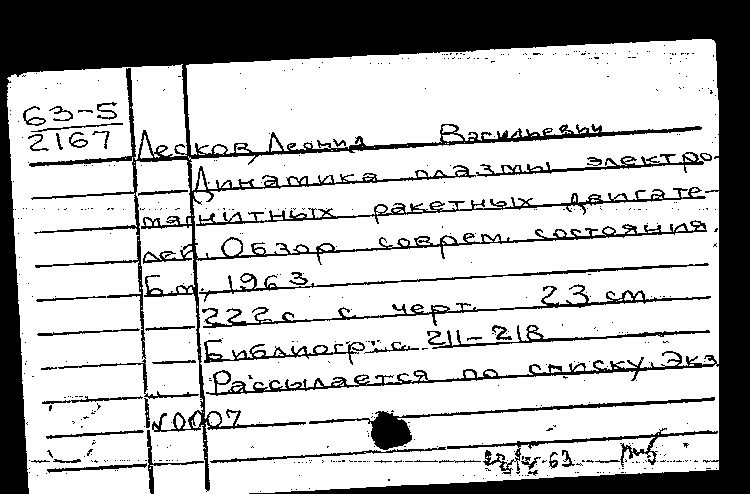 63-5
2167
Лесков, Леонид Васильевич
Динамика плазмы электро-
магнитных ракетных двигате-
лей. Обзор соврем. состояния.
Б.м., 1963.
222 с с черт. 23 см
Библиогр.: с. 211-218
Рассылается по списку. Экз
№0007
63